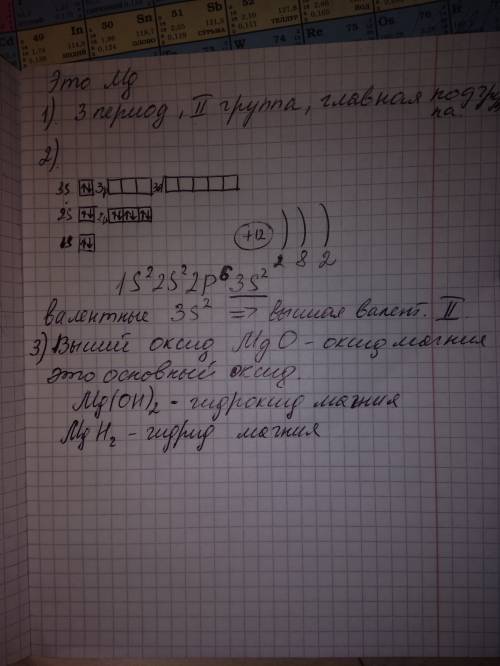 49 In 50 Sn 51 Sb 52
ИНДИЙ ОЛОВО СУРЬМА ТЕЛЛУР ИОД
W 74 Re 75 Os 76 Ir
Это Mg
1) 3 период, II группа, главная подгруп
па.
2)
3s 3p 3d
2s 2p
1s
+12
2 8 2
1S²2S²2P⁶3S²
валентные 3S² => высшая валент. II.
3) Высий оксид MgO - оксид магния
это основный оксид.
Mg(OH)₂ - гидроксид магния
MgH₂ - гидрид магния